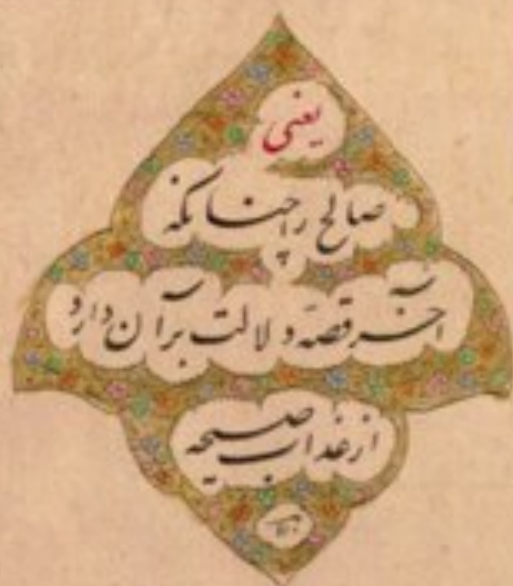 یعنی
صالح را چنانکه
آخر قصه دلالت بر آن دارد
از عذاب صیحه